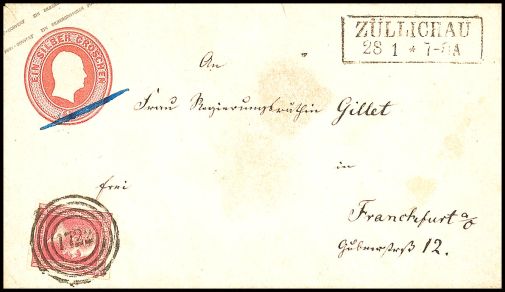 EIN SILBER GROSCHEN
ZÜLLICHAU
28 1 * 7-8A
An
Frau Regierungsräthin Gillet
frei
in
Franckfurt a/O
Gubnerstrß 12.
1722